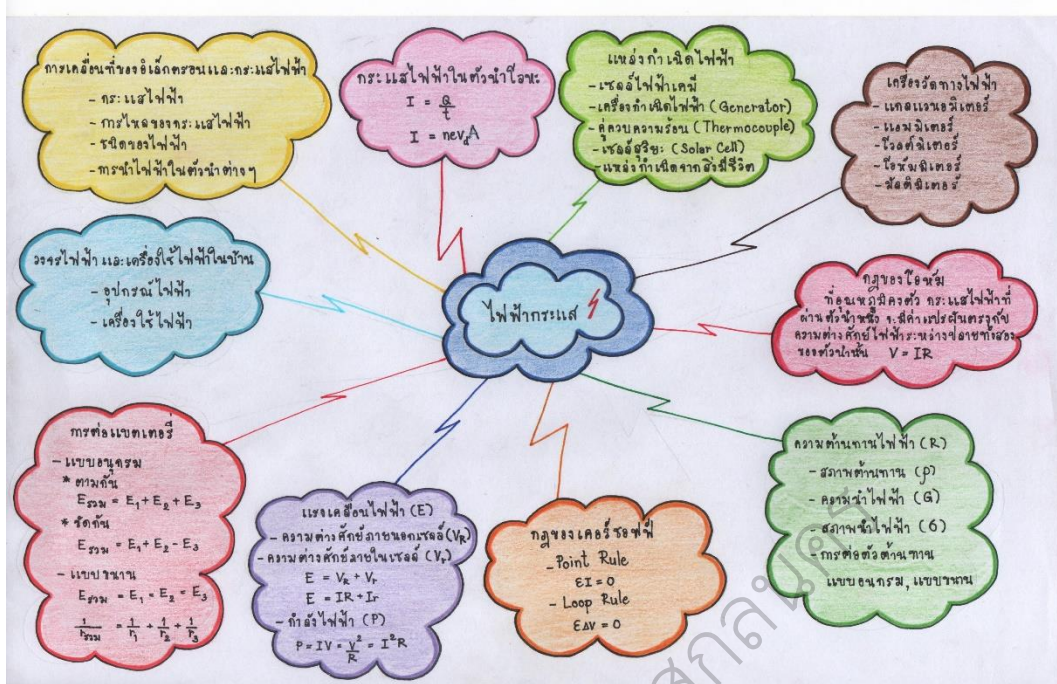 การเคลื่อนที่ของอิเล็กตรอนและกระแสไฟฟ้า
- กระแสไฟฟ้า
- การไหลของกระแสไฟฟ้า
- ชนิดของไฟฟ้า
- การนำไฟฟ้าในตัวนำต่างๆ
กระแสไฟฟ้าในตัวนำโลหะ
I = Q/t
I = nev_dA
แหล่งกำเนิดไฟฟ้า
- เซลล์ไฟฟ้าเคมี
- เครื่องกำเนิดไฟฟ้า (Generator)
- คู่ควบความร้อน (Thermocouple)
- เซลล์สุริยะ (Solar Cell)
- แหล่งกำเนิดจากสิ่งมีชีวิต
เครื่องวัดทางไฟฟ้า
- แกลแวนอมิเตอร์
- แอมมิเตอร์
- โวลต์มิเตอร์
- โอห์มมิเตอร์
- มัลติมิเตอร์
วงจรไฟฟ้าและเครื่องใช้ไฟฟ้าในบ้าน
- อุปกรณ์ไฟฟ้า
- เครื่องใช้ไฟฟ้า
ไฟฟ้ากระแส
กฎของโอห์ม
ที่อุณหภูมิคงตัว กระแสไฟฟ้าที่
ผ่านตัวนำหนึ่ง จะมีค่าแปรผันตรงกับ
ความต่างศักย์ไฟฟ้าระหว่างปลายทั้งสอง
ของตัวนำนั้น V = IR
การต่อแบตเตอรี่
- แบบอนุกรม
* ตามกัน
Eรวม = E₁ + E₂ + E₃
* ขัดกัน
Eรวม = E₁ + E₂ - E₃
- แบบขนาน
Eรวม = E₁ = E₂ = E₃
1/rรวม = 1/r₁ + 1/r₂ + 1/r₃
แรงเคลื่อนไฟฟ้า (E)
- ความต่างศักย์ภายนอกเซลล์ (V_R)
- ความต่างศักย์ภายในเซลล์ (V_r)
E = V_R + V_r
E = IR + Ir
- กำลังไฟฟ้า (P)
P = IV = V²/R = I²R
กฎของเคอร์ชอฟฟ์
- Point Rule
ΣI = 0
- Loop Rule
ΣΔV = 0
ความต้านทานไฟฟ้า (R)
- สภาพต้านทาน (ρ)
- ความนำไฟฟ้า (G)
- สภาพนำไฟฟ้า (σ)
- การต่อตัวต้านทาน
แบบอนุกรม, แบบขนาน